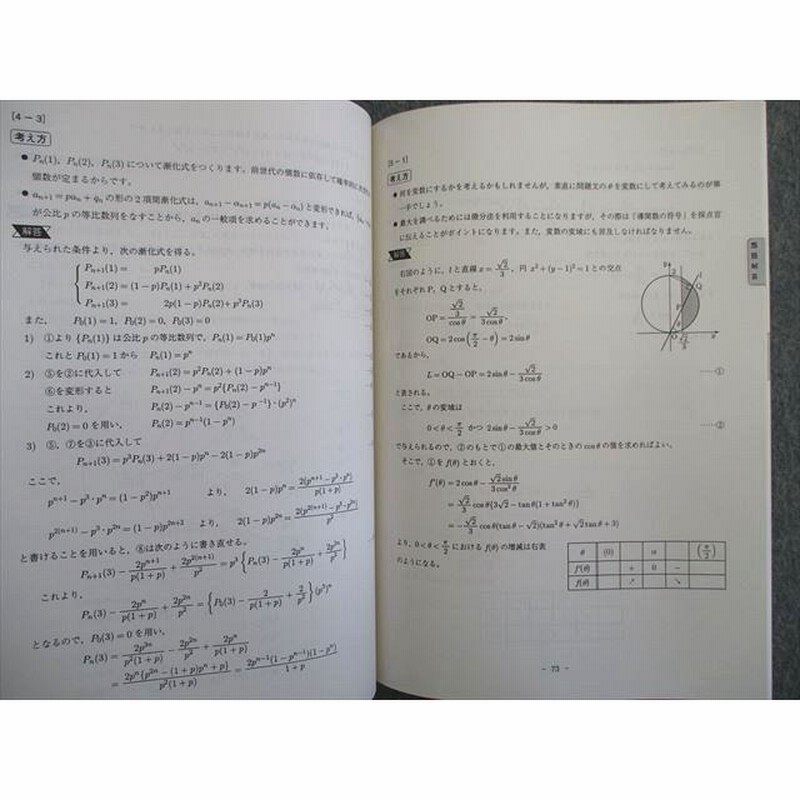 [4－3]
考え方
● Pₙ(1)，Pₙ(2)，Pₙ(3) について漸化式をつくります。前世代の個数に依存して確率的に
個数が定まるからです。
● aₙ₊₁=paₙ+qₙ の形の2項間漸化式は，aₙ₊₁−αₙ₊₁=p(aₙ−αₙ) と変形できれば，
が公比 p の等比数列をなすことから，aₙ の一般項を求めることができます。
解答
与えられた条件より，次の漸化式を得る。
Pₙ₊₁(1)= pPₙ(1)
Pₙ₊₁(2)=(1−p)Pₙ(1)+p²Pₙ(2)
Pₙ₊₁(3)= 2p(1−p)Pₙ(2)+p³Pₙ(3)
また， P₀(1)=1，P₀(2)=0，P₀(3)=0
1) ①より {Pₙ(1)} は公比 p の等比数列で，Pₙ(1)=P₀(1)pⁿ
これと P₀(1)=1 から Pₙ(1)=pⁿ
2) ⑤を②に代入して Pₙ₊₁(2)=p²Pₙ(2)+(1−p)pⁿ
⑥を変形すると Pₙ₊₁(2)−pⁿ=p²{Pₙ(2)−pⁿ⁻¹}
これより， Pₙ(2)−pⁿ⁻¹={P₀(2)−p⁻¹}·(p²)ⁿ
P₀(2)=0 を用い， Pₙ(2)=pⁿ⁻¹(1−pⁿ)
3) ⑤，⑦を③に代入して
Pₙ₊₁(3)=p³Pₙ(3)+2(1−p)pⁿ−2(1−p)p²ⁿ
ここで，
pⁿ⁺¹−p³·pⁿ=(1−p²)pⁿ⁺¹ より， 2(1−p)pⁿ=2(pⁿ⁺¹−p³·pⁿ)/p(1+p)
p²⁽ⁿ⁺¹⁾−p³·p²ⁿ=(1−p)p²ⁿ⁺² より， 2(1−p)p²ⁿ=2(p²⁽ⁿ⁺¹⁾−p³·p²ⁿ)/p²
と書けることを用いると，⑧は次のように書き直せる。
Pₙ₊₁(3)−2pⁿ⁺¹/p(1+p)+2p²⁽ⁿ⁺¹⁾/p²=p³{Pₙ(3)−2pⁿ/p(1+p)+2p²ⁿ/p²}
これより，
Pₙ(3)−2pⁿ/p(1+p)+2p²ⁿ/p²={P₀(3)−2/p(1+p)+2/p²}(p³)ⁿ
となるので，P₀(3)=0 を用い，
Pₙ(3)=2p³ⁿ/p²(1+p)−2p²ⁿ/p²+2pⁿ/p(1+p)
=2pⁿ{p²ⁿ−(1+p)pⁿ+p}/p²(1+p)=2pⁿ⁻¹(1−pⁿ⁻¹)(1−pⁿ)/1+p
[5－1]
考え方
● 何を変数にするかを考えるかもしれませんが，素直に問題文の θ を変数にして考えてみるのが第
一手でしょう。
● 最大を調べるためには微分法を利用することになりますが，その際は「導関数の符号」を採点官
に伝えることがポイントになります。また，変数の変域にも言及しなければなりません。
解答
右図のように，l と直線 x=√2/3，円 x²+(y−1)²=1 との交点
をそれぞれ P，Q とすると，
OP=(√2/3)/cosθ=√2/3cosθ，
OQ=2cos(π/2−θ)=2sinθ
であるから，
L=OQ−OP=2sinθ−√2/3cosθ ……①
と表される。
ここで，θ の変域は
0<θ<π/2 かつ 2sinθ−√2/3cosθ>0 ……②
で与えられるので，②のもとで①の最大値とそのときの cosθ の値を求めればよい。
そこで，①を f(θ) とおくと，
f′(θ)=2cosθ−√2sinθ/3cos²θ
=√2/3 cosθ{3√2−tanθ(1+tan²θ)}
=−√2/3 cosθ(tanθ−√2)(tan²θ+√2tanθ+3)
より，0<θ<π/2 における f(θ) の増減は右表
のようになる。
θ (0) α (π/2)
f′(θ) + 0 −
f(θ) ↗ ↘
y
l
Q
P
O
√2/3
x
－ 73 －